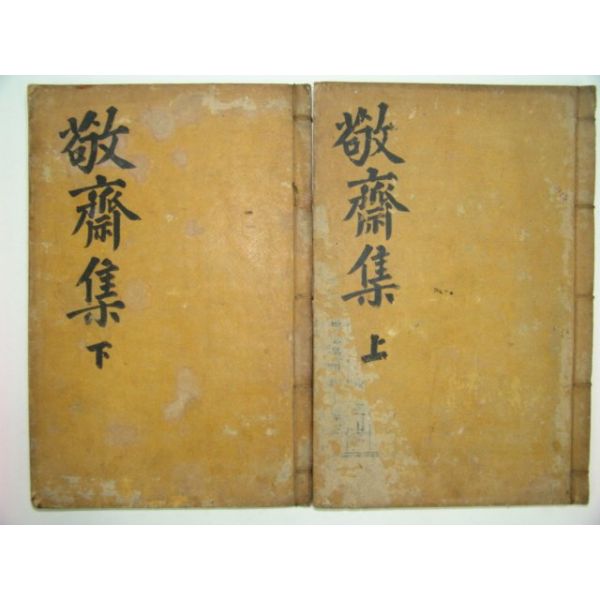 敬齋集
上
敬齋集
下